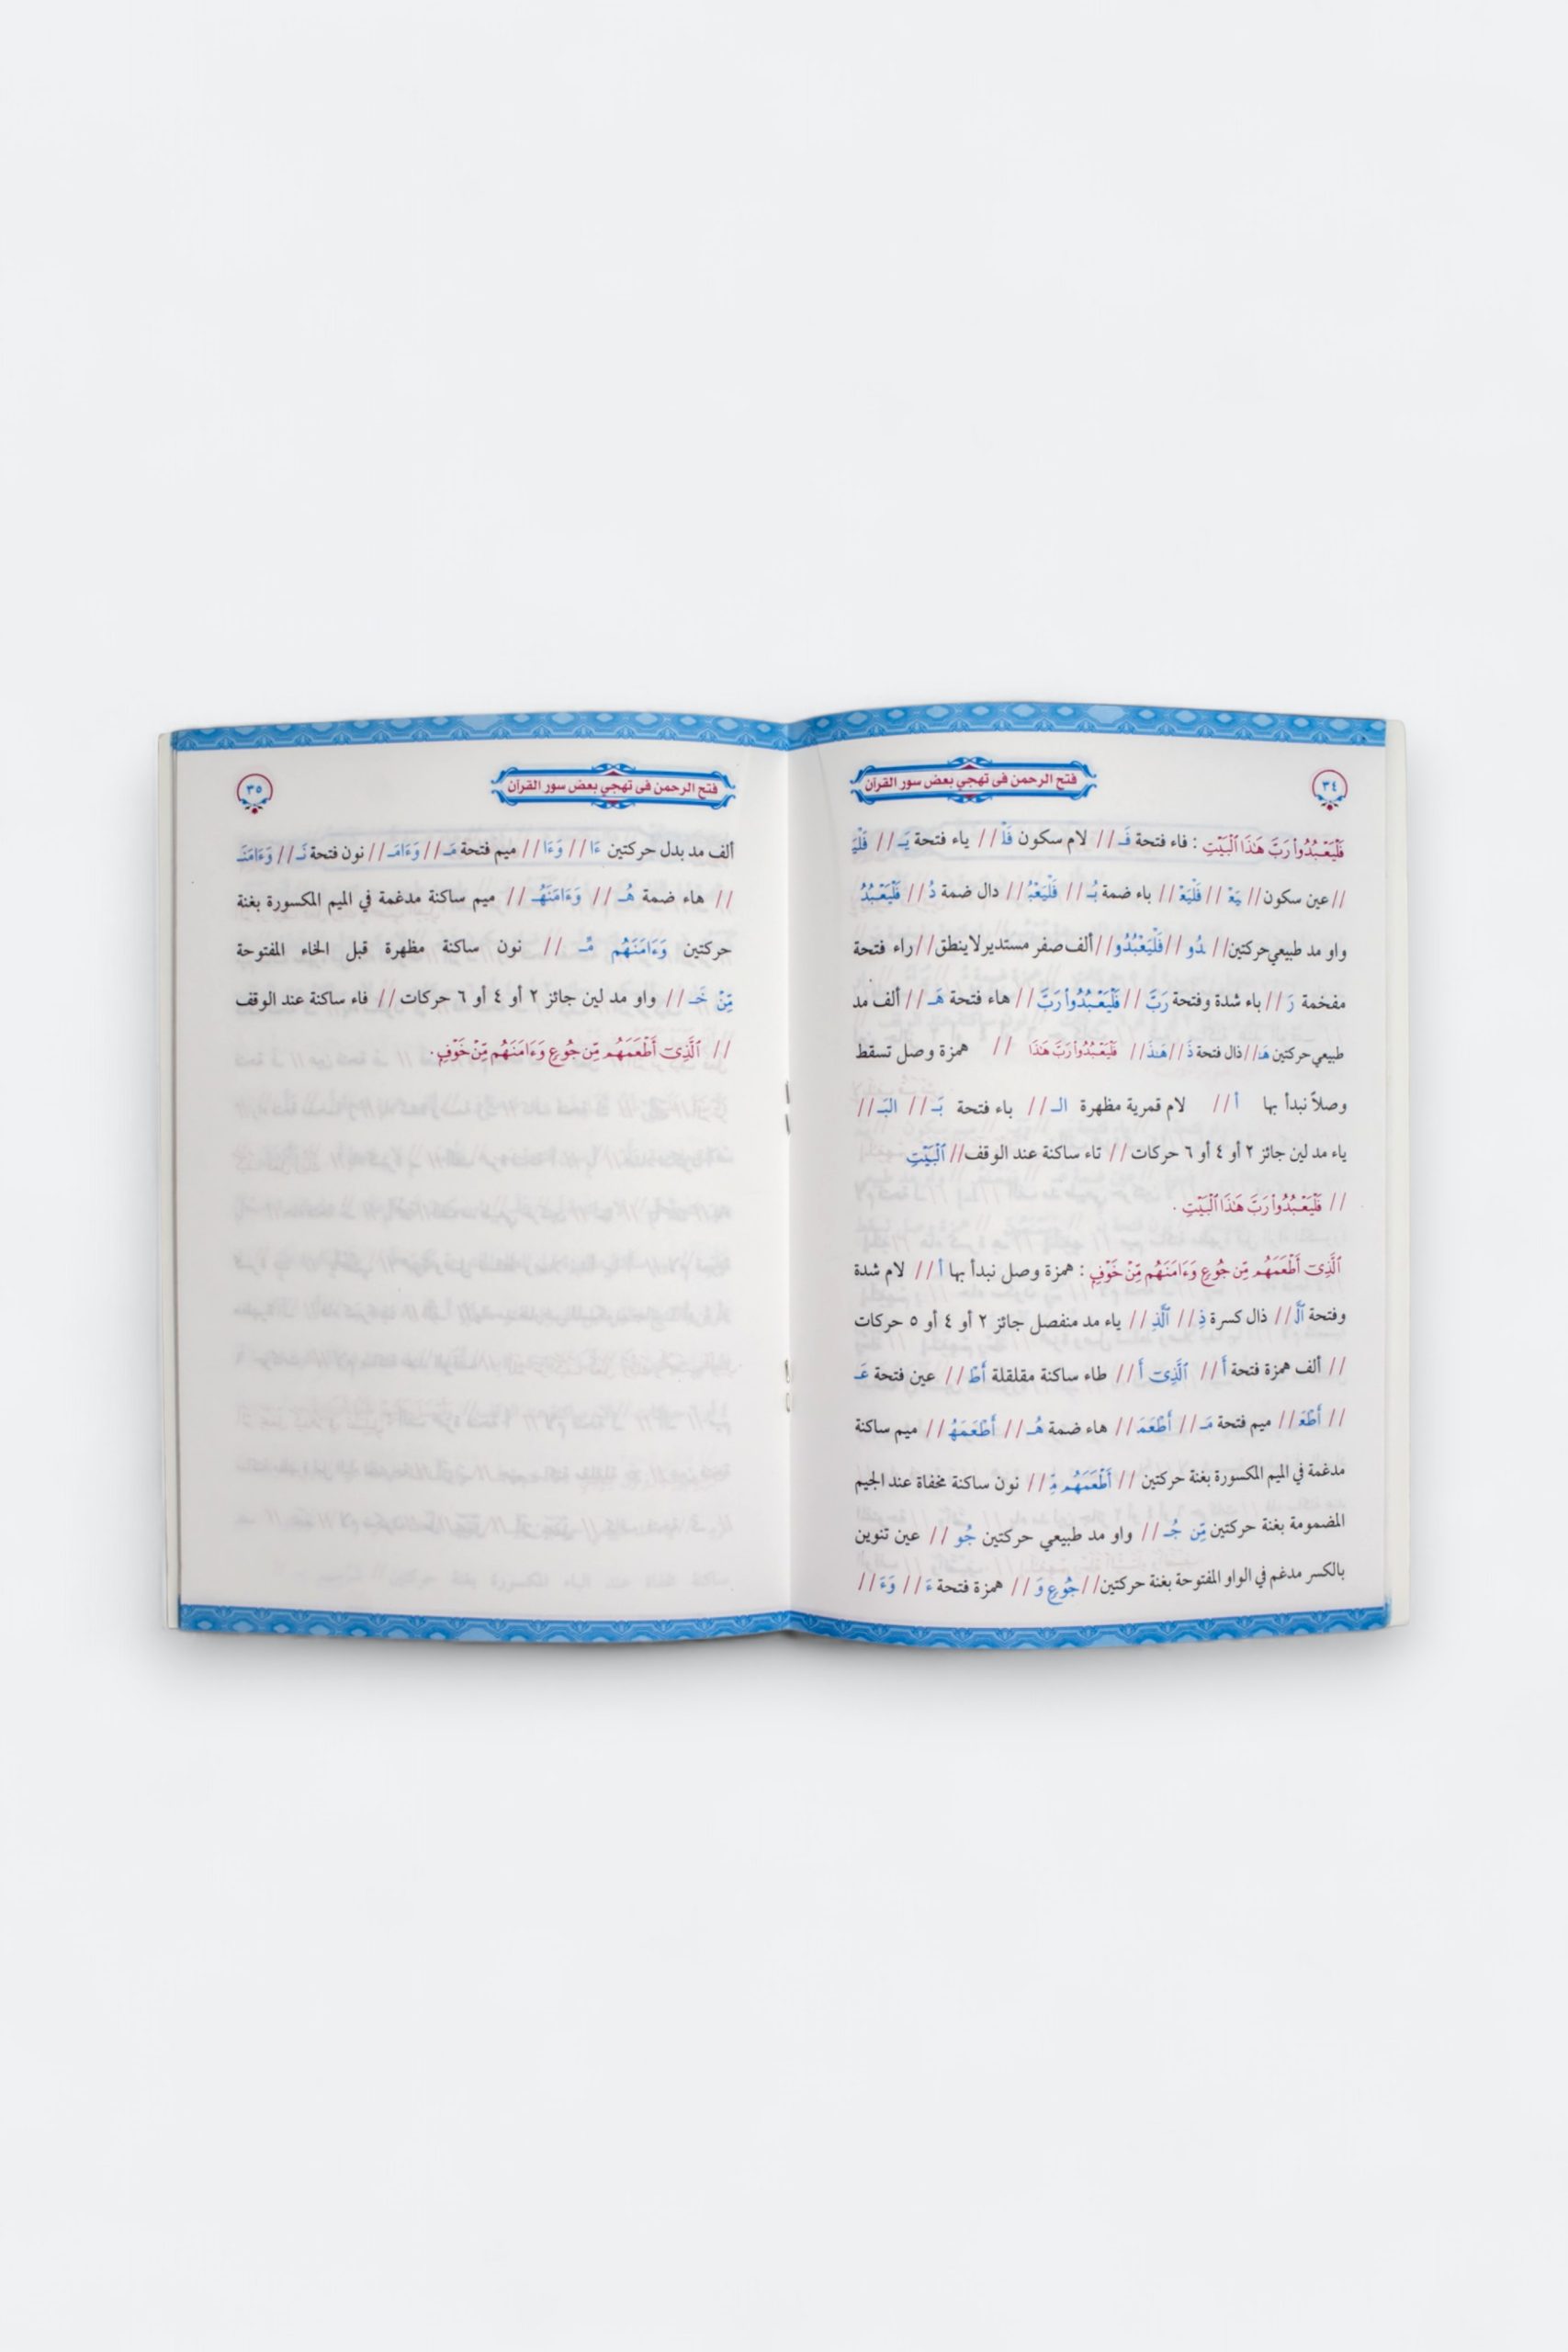 ٣٤
فتح الرحمن فى تهجي بعض سور القرآن
فَلْيَعْبُدُوا۟ رَبَّ هَـٰذَا ٱلْبَيْتِ : فاء فتحة فَـ // لام سكون فَلْ // ياء فتحة يَـ // فَلْيَـ
// عين سكون // يَعْ // فَلْيَعْ // باء ضمة بُـ // فَلْيَعْبُـ // دال ضمة دُ // فَلْيَعْبُدُ
واو مد طبيعي حركتين // دُو // فَلْيَعْبُدُو // ألف صفر مستدير لا ينطق // راء فتحة
مفخمة رَ // باء شدة وفتحة رَبَّ // فَلْيَعْبُدُوا۟ رَبَّ // هاء فتحة هَـ // ألف مد
طبيعي حركتين هَـٰ // ذال فتحة ذَ // هَـٰذَ // فَلْيَعْبُدُوا۟ رَبَّ هَـٰذَا // همزة وصل تسقط
وصلاً نبدأ بها أ // لام قمرية مظهرة الـ // باء فتحة بَـ // البَـ //
ياء مد لين جائز ٢ أو ٤ أو ٦ حركات // تاء ساكنة عند الوقف // ٱلْبَيْتِ
// فَلْيَعْبُدُوا۟ رَبَّ هَـٰذَا ٱلْبَيْتِ .
ٱلَّذِىٓ أَطْعَمَهُم مِّن جُوعٍ وَءَامَنَهُم مِّنْ خَوْفٍ : همزة وصل نبدأ بها أ // لام شدة
وفتحة ٱلَّـ // ذال كسرة ذِ // ٱلَّذِ // ياء مد منفصل جائز ٢ أو ٤ أو ٥ حركات
// ألف همزة فتحة أَ // ٱلَّذِىٓ أَ // طاء ساكنة مقلقلة أَطْ // عين فتحة عَـ
// أَطْعَـ // ميم فتحة مَـ // أَطْعَمَـ // هاء ضمة هُـ // أَطْعَمَهُـ // ميم ساكنة
مدغمة في الميم المكسورة بغنة حركتين // أَطْعَمَهُم مِّـ // نون ساكنة مخفاة عند الجيم
المضمومة بغنة حركتين مِّن جُـ // واو مد طبيعي حركتين جُو // عين تنوين
بالكسر مدغم في الواو المفتوحة بغنة حركتين // جُوعٍ وَ // همزة فتحة ءَ // وَءَ //
فتح الرحمن فى تهجي بعض سور القرآن
٣٥
ألف مد بدل حركتين ءَا // وَءَا // ميم فتحة مَـ // وَءَامَـ // نون فتحة نَـ // وَءَامَنَـ
// هاء ضمة هُـ // وَءَامَنَهُـ // ميم ساكنة مدغمة في الميم المكسورة بغنة
حركتين وَءَامَنَهُم مِّـ // نون ساكنة مظهرة قبل الخاء المفتوحة
مِّنْ خَـ // واو مد لين جائز ٢ أو ٤ أو ٦ حركات // فاء ساكنة عند الوقف
// ٱلَّذِىٓ أَطْعَمَهُم مِّن جُوعٍ وَءَامَنَهُم مِّنْ خَوْفٍ .